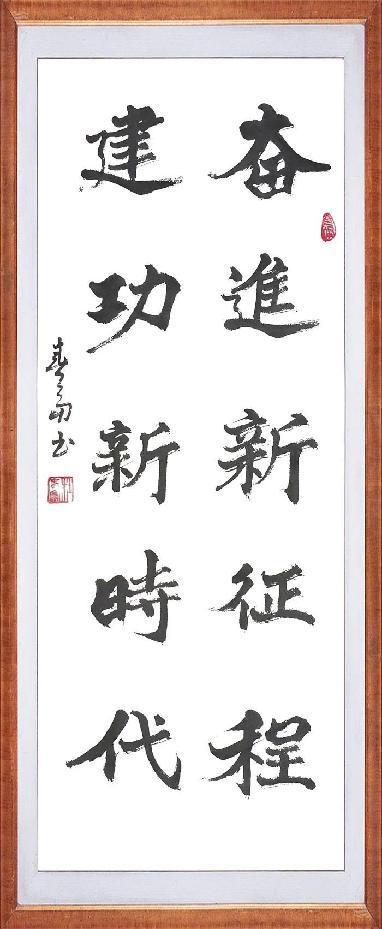 奮進新征程
建功新時代
書